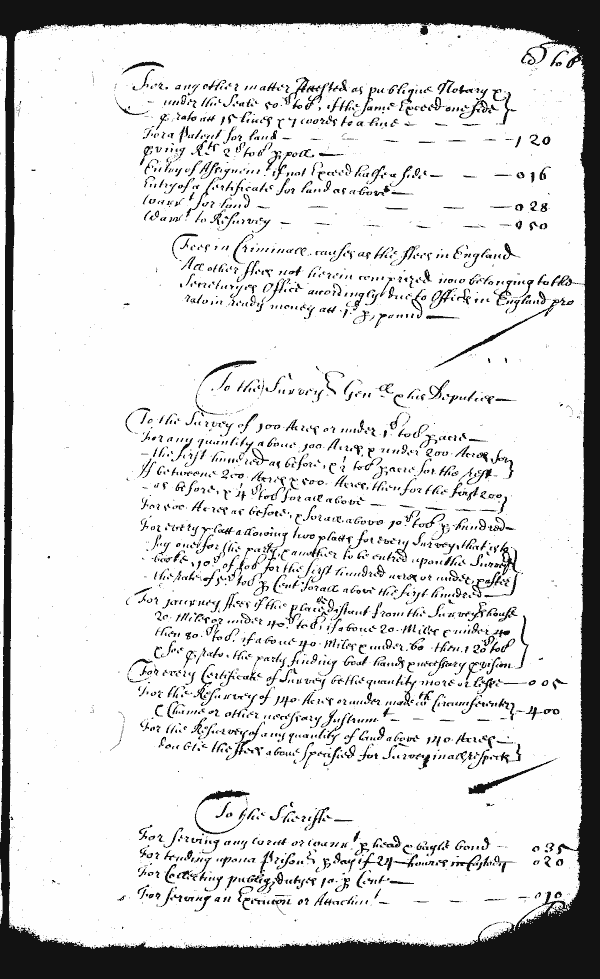 For any other matter Attested as publique Notary &
under the Seale 50ˡᵇ tob: if the same Exceed one side
p rato att 15 lines & 7 words to a line
For a Patent for land — 120
p poll
Entry of Assignmᵗ if not Exceed halfe a side — 016
Entry of a Certificate for land as above
Warrᵗ for land — 028
Warrᵗ to Resurvey — 050
Fees in Criminall causes as the ffees in England
All other ffees not herein comprized now belonging to the
Secretaryes Office accordingly due to Offices in England pro
rato in ready money att 1ᵈ p pound
To the Surveyʳ Genˡˡ & his Deputies
To the Survey of 100 Acres or under 1ˡᵇ tob p acre
For any quantity above 100 Acres & under 200 Acres for
the first hundred as before, & ½ tob p acre for the rest
If betweene 200 Acres & 500 Acres, then for the first 200
as before, & ¼ˡᵇ tob for all above
For 500 Acres as before, & for all above 10ˡᵇ tob p hundred
For every platt allowing two platts for every Survey, that is to
say one for the party & another to be entred upon the Surveyʳˢ
booke, 10ˡᵇ of tob for the first hundred acres or under, & after
the rate of 5ˡᵇ tob p Cent for all above the first hundred
For Journey ffees if the place distant from the Surveyʳˢ house
20 Miles or under 40ˡᵇ tob, if above 20 Miles & under 40
then 80ˡᵇ tob, if above 40 Miles & under 60 then 120ˡᵇ tob
& soe p rato, the party finding boat hands & necessary pvision
For every Certificate of Survey be the quantity more or lesse — 005
For the Resurvey of 140 Acres or under made wᵗʰ Circumferentʳ
Chaine or other necessary Instrumᵗ — 400
For the Resurvey of any quantity of land above 140 Acres
double the ffees above specified for Survey in all respects
To the Sheriffe
For serving any writt or warrᵗ p head & bayle bond — 035
For tending upon a Prisonʳ p day if 24 howres in Custody — 020
For Collecting publiq dutyes 10 p Cent
For serving an Execucon or Attachmᵗ — 010